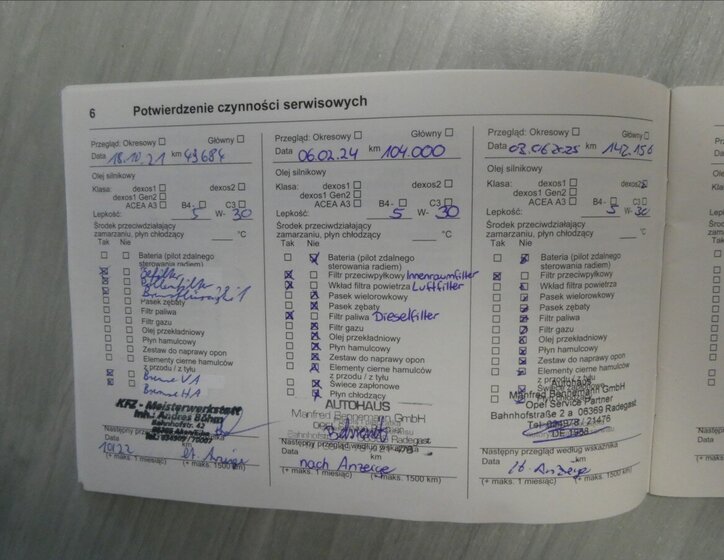 6 Potwierdzenie czynności serwisowych
Przegląd: Okresowy Główny
Data 18.10.21 km 49684
Olej silnikowy
Klasa: dexos1 dexos2
dexos1 Gen2
ACEA A3 B4 - C3
Lepkość: 5 W- 30
Środek przeciwdziałający
zamarzaniu, płyn chłodzący °C
Tak Nie
Bateria (pilot zdalnego
sterowania radiem)
Pollenfilter
Pasek zębaty
Filtr paliwa
Filtr gazu
Olej przekładniowy
Płyn hamulcowy
Zestaw do naprawy opon
Elementy cierne hamulców
z przodu / z tyłu
Bremse VA
Bremse HA
KFZ - Meisterwerkstatt
Inh. Andres Böhm
Bahnhofstr. 42
Następny przegląd według wskaźnika
Data km
10/22 lt. Anzeige
(+ maks. 1 miesiąc) (+ maks. 1500 km)
Przegląd: Okresowy Główny
Data 06.02.24 km 104.000
Olej silnikowy
Klasa: dexos1 dexos2
dexos1 Gen2
ACEA A3 B4 - C3
Lepkość: 5 W- 30
Środek przeciwdziałający
zamarzaniu, płyn chłodzący °C
Tak Nie
Bateria (pilot zdalnego
sterowania radiem)
Filtr przeciwpyłkowy Innenraumfilter
Wkład filtra powietrza Luftfilter
Pasek wielorowkowy
Pasek zębaty
Filtr paliwa Dieselfilter
Filtr gazu
Olej przekładniowy
Płyn hamulcowy
Zestaw do naprawy opon
Elementy cierne hamulców
z przodu / z tyłu
Świece zapłonowe
Płyn chłodzący
AUTOHAUS
Manfred Bennemann GmbH
Następny przegląd według wskaźnika
Data km
nach Anzeige
(+ maks. 1 miesiąc) (+ maks. 1500 km)
Przegląd: Okresowy Główny
Data 03.06.2025 km 142.156
Olej silnikowy
Klasa: dexos1 dexos2
dexos1 Gen2
ACEA A3 B4 - C3
Lepkość: 5 W- 30
Środek przeciwdziałający
zamarzaniu, płyn chłodzący °C
Tak Nie
Bateria (pilot zdalnego
sterowania radiem)
Filtr przeciwpyłkowy
Wkład filtra powietrza
Pasek wielorowkowy
Pasek zębaty
Filtr paliwa
Filtr gazu
Olej przekładniowy
Płyn hamulcowy
Zestaw do naprawy opon
Elementy cierne hamulców
z przodu / z tyłu
Autohaus
Manfred Bennemann GmbH
Opel Service Partner
Bahnhofstraße 2 a 06369 Radegast
Tel. 034978 / 21476
Następny przegląd według wskaźnika
Data km
lt. Anzeige
(+ maks. 1 miesiąc) (+ maks. 1500 km)